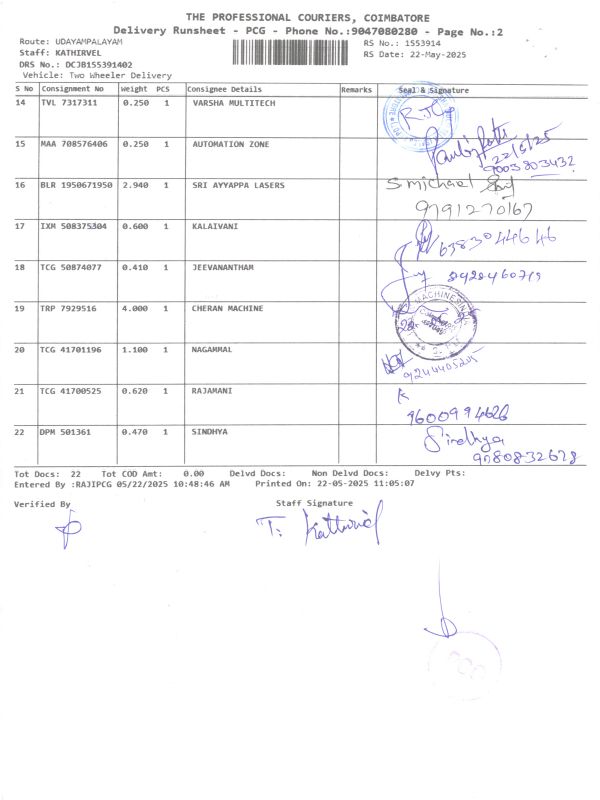 THE PROFESSIONAL COURIERS, COIMBATORE
Delivery Runsheet - PCG - Phone No.:9047080280 - Page No.:2
Route: UDAYAMPALAYAM
Staff: KATHIRVEL
DRS No.: DCJB155391402
Vehicle: Two Wheeler Delivery
RS No.: 1553914
RS Date: 22-May-2025
S No Consignment No Weight PCS Consignee Details Remarks Seal & Signature
14 TVL 7317311 0.250 1 VARSHA MULTITECH
15 MAA 708576406 0.250 1 AUTOMATION ZONE
22/5/25
9003803432
16 BLR 1950671950 2.940 1 SRI AYYAPPA LASERS S michael
9791270167
17 IXM 508375304 0.600 1 KALAIVANI 6383044646
18 TCG 50874077 0.410 1 JEEVANANTHAM
19 TRP 7929516 4.000 1 CHERAN MACHINE
20 TCG 41701196 1.100 1 NAGAMMAL
21 TCG 41700525 0.620 1 RAJAMANI
9600994626
22 DPM 501361 0.470 1 SINDHYA Sindhya
9780832678
Tot Docs: 22 Tot COD Amt: 0.00 Delvd Docs: Non Delvd Docs: Delvy Pts:
Entered By :RAJIPCG 05/22/2025 10:48:46 AM Printed On: 22-05-2025 11:05:07
Verified By Staff Signature
T. Kathirvel